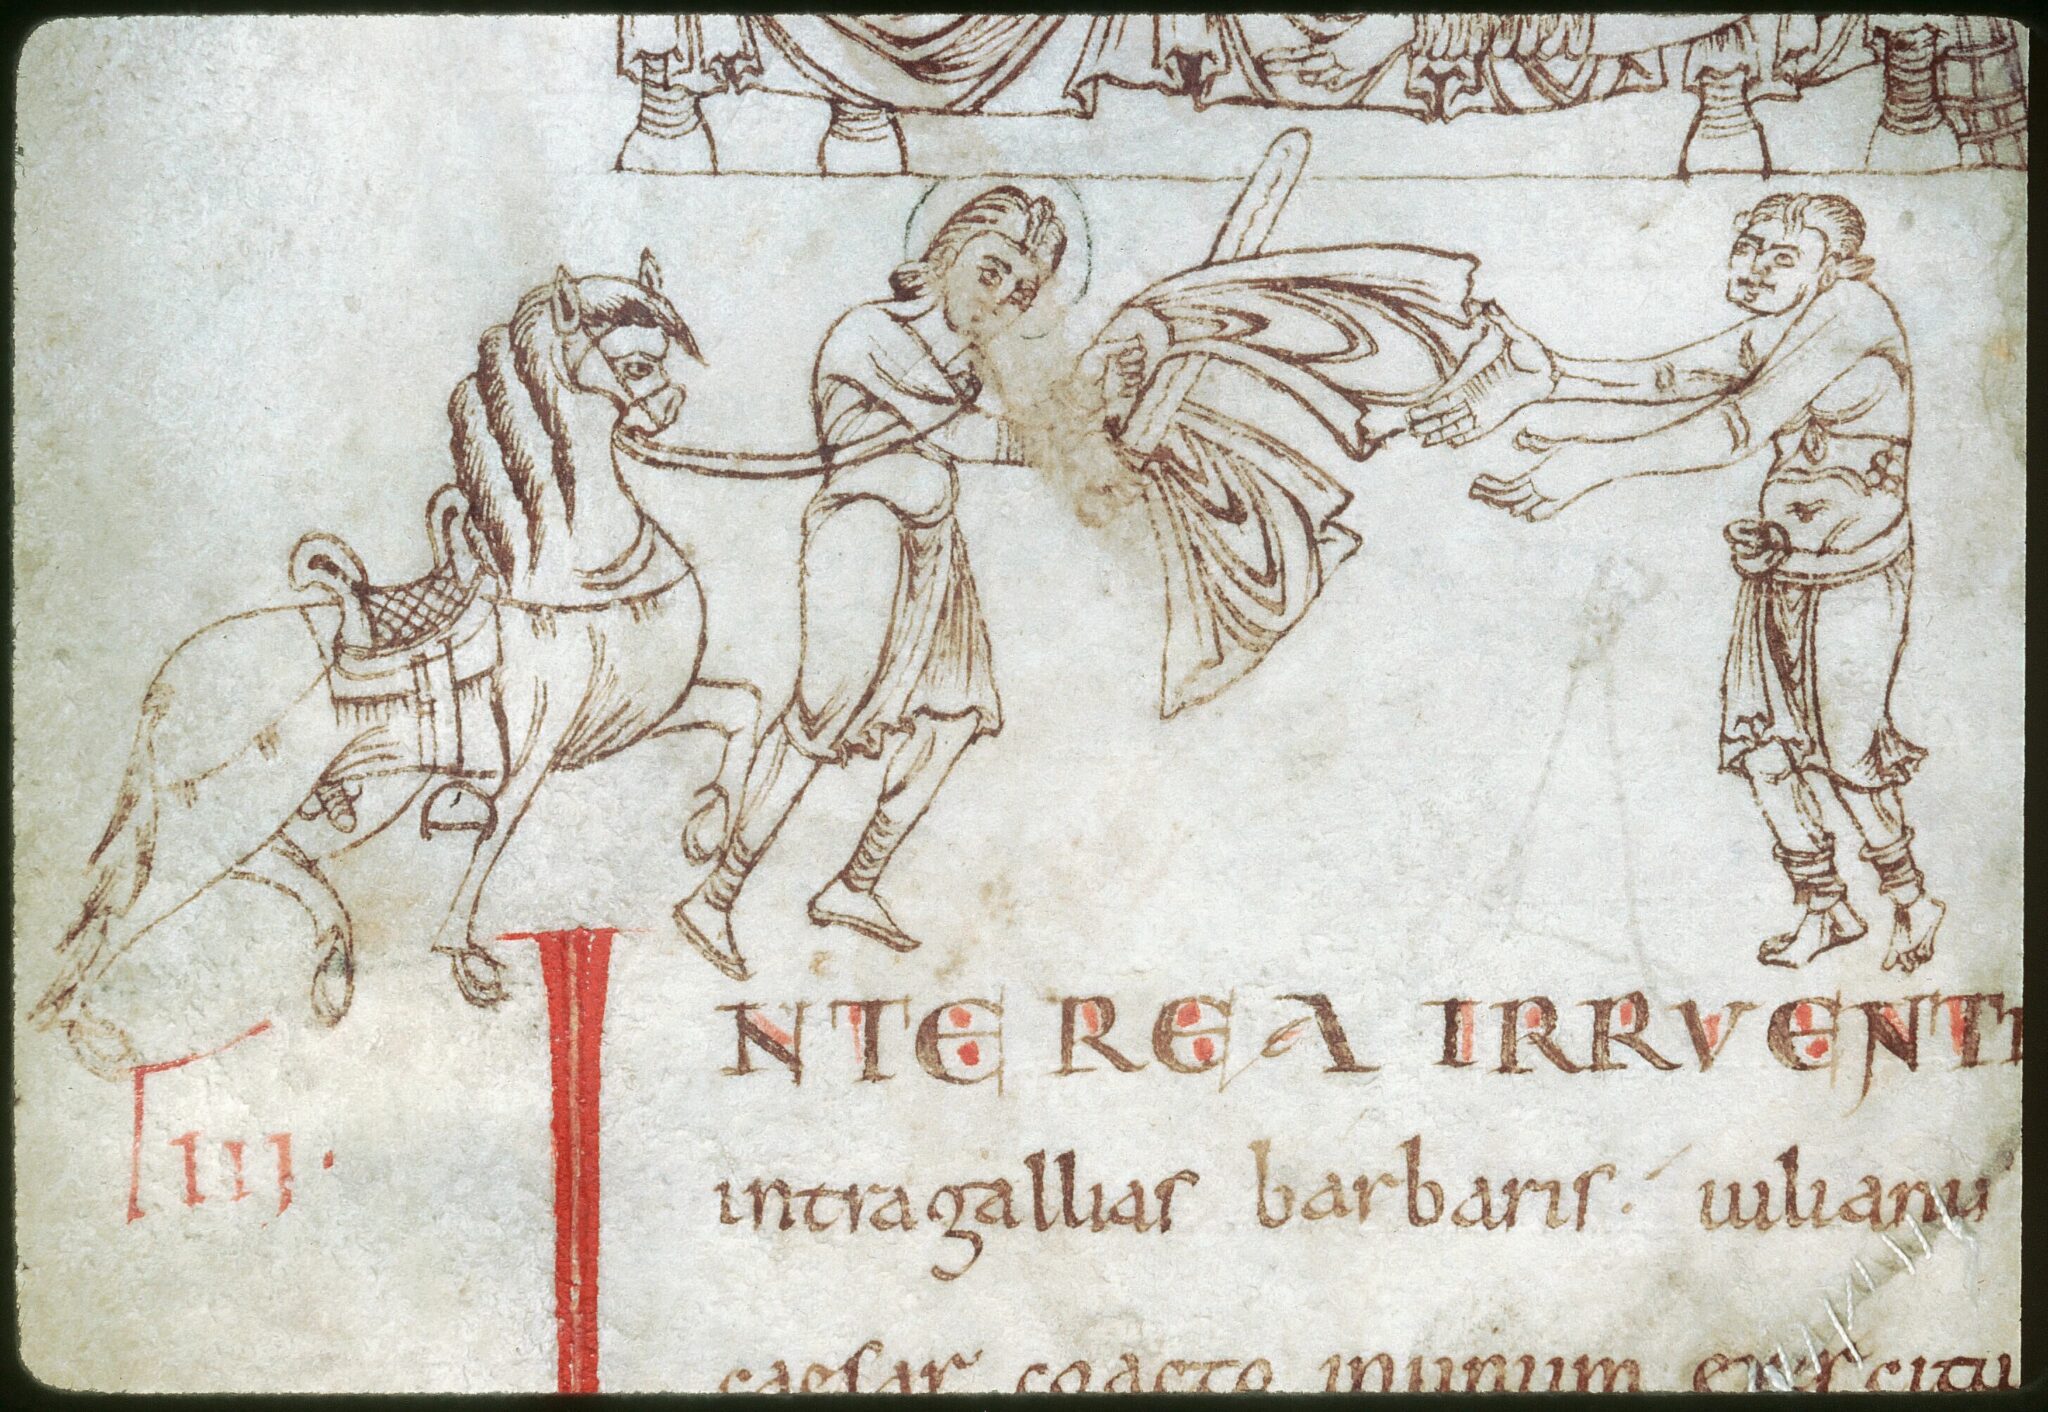 III.
INTEREA IRRVENTI
intragallias barbaris. iulianu
caesar coacto inunum exercitu